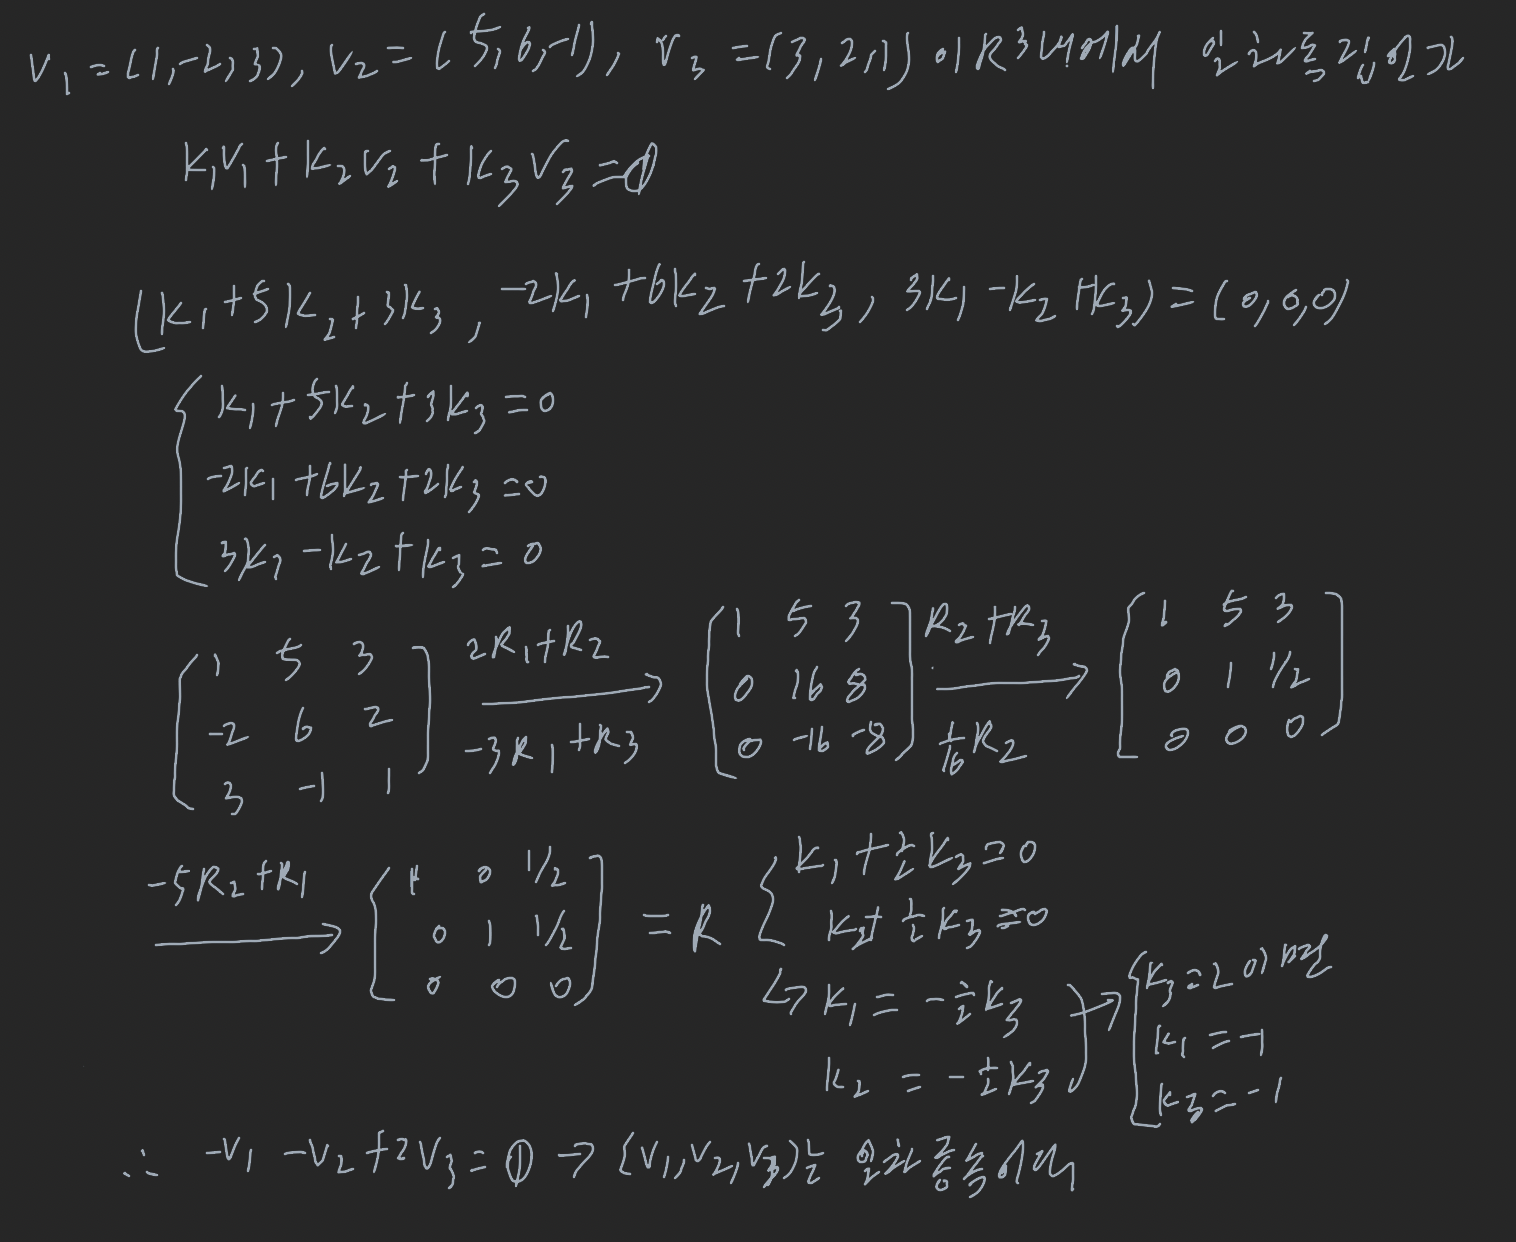 v₁ = (1, -2, 3), v₂ = (5, 6, -1), v₃ = (3, 2, 1) 이 R³ 내에서 일차독립인가
k₁v₁ + k₂v₂ + k₃v₃ = 𝟘
(k₁ + 5k₂ + 3k₃, -2k₁ + 6k₂ + 2k₃, 3k₁ - k₂ + k₃) = (0, 0, 0)
k₁ + 5k₂ + 3k₃ = 0
-2k₁ + 6k₂ + 2k₃ = 0
3k₁ - k₂ + k₃ = 0
[1 5 3; -2 6 2; 3 -1 1] 2R₁+R₂ -3R₁+R₃ → [1 5 3; 0 16 8; 0 -16 -8] R₂+R₃ 1/16 R₂ → [1 5 3; 0 1 1/2; 0 0 0]
-5R₂+R₁ → [1 0 1/2; 0 1 1/2; 0 0 0] = R
k₁ + 1/2 k₃ = 0
k₂ + 1/2 k₃ = 0
↳ k₁ = -1/2 k₃
k₂ = -1/2 k₃
→ k₃ = 2 이면
k₁ = -1
k₃ = -1
∴ -v₁ - v₂ + 2v₃ = 𝟘 → {v₁, v₂, v₃}는 일차종속이다